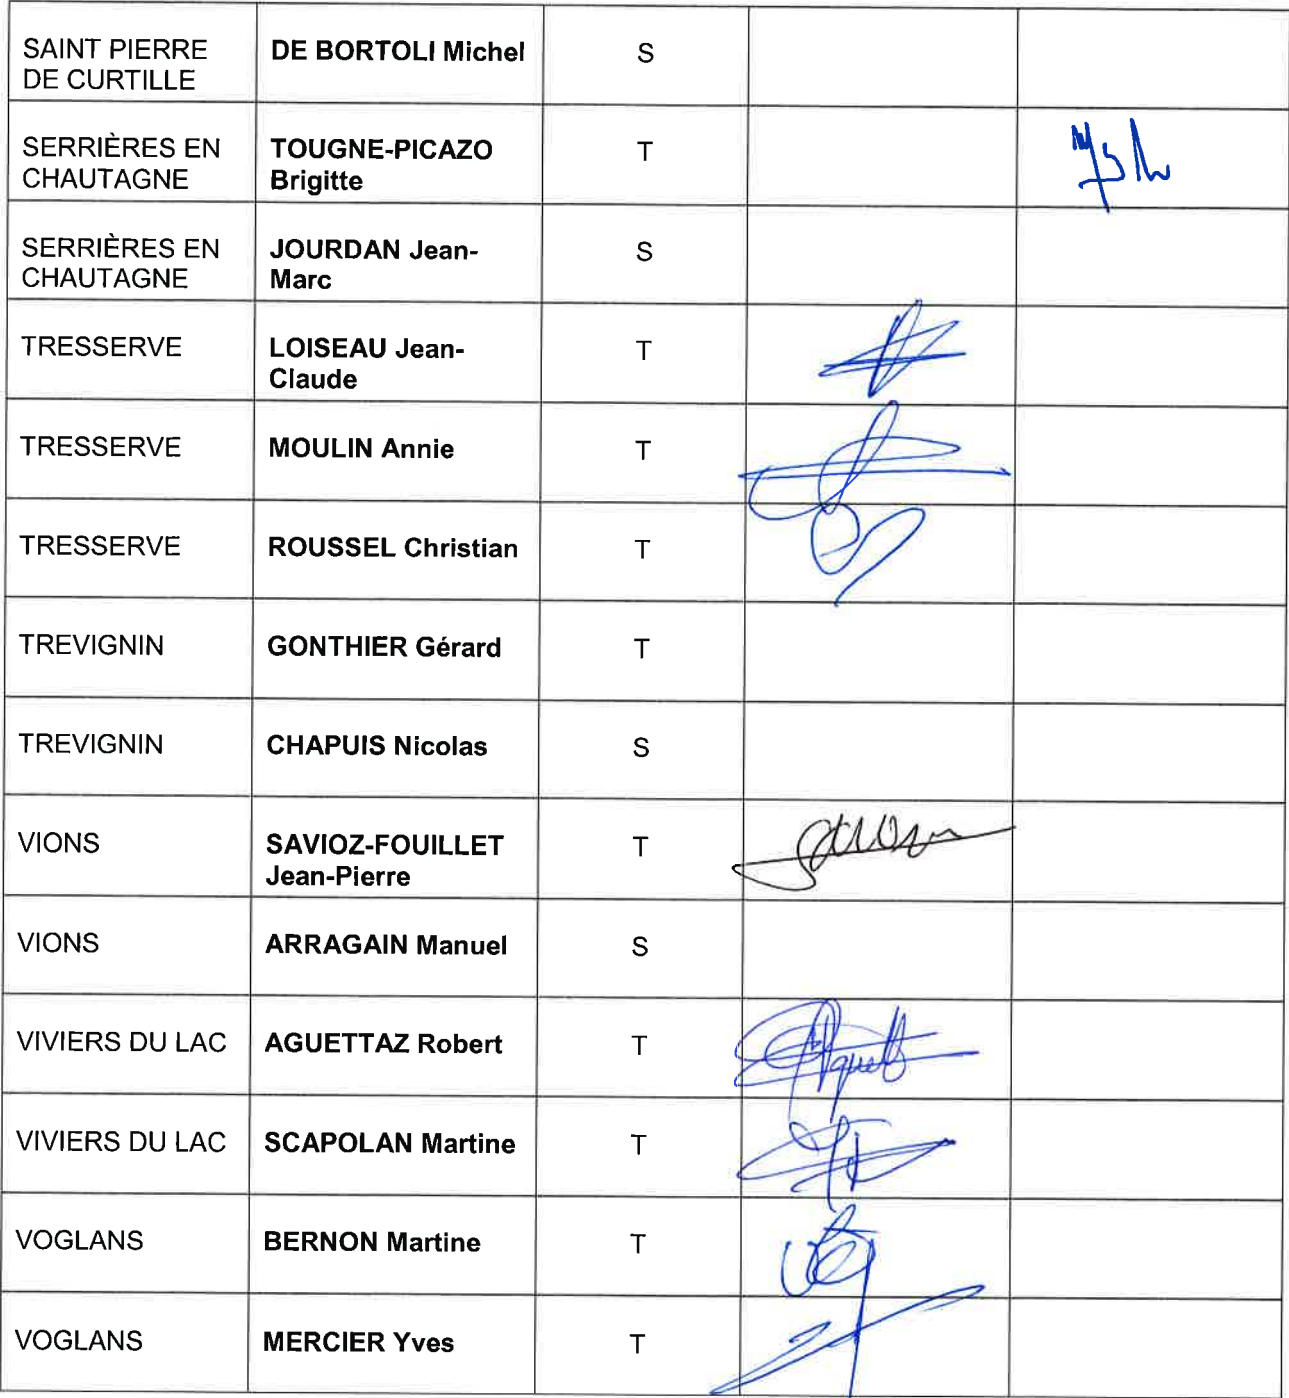 SAINT PIERRE DE BORTOLI Michel S
DE CURTILLE
SERRIÈRES EN TOUGNE-PICAZO T
CHAUTAGNE Brigitte
SERRIÈRES EN JOURDAN Jean- S
CHAUTAGNE Marc
TRESSERVE LOISEAU Jean- T
Claude
TRESSERVE MOULIN Annie T
TRESSERVE ROUSSEL Christian T
TREVIGNIN GONTHIER Gérard T
TREVIGNIN CHAPUIS Nicolas S
VIONS SAVIOZ-FOUILLET T
Jean-Pierre
VIONS ARRAGAIN Manuel S
VIVIERS DU LAC AGUETTAZ Robert T
VIVIERS DU LAC SCAPOLAN Martine T
VOGLANS BERNON Martine T
VOGLANS MERCIER Yves T